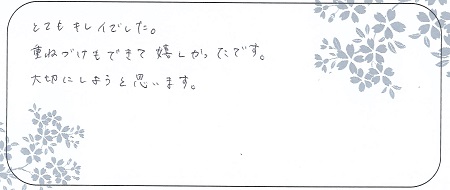 とてもキレイでした。
重ねづけもできて嬉しかったです。
大切にしようと思います。